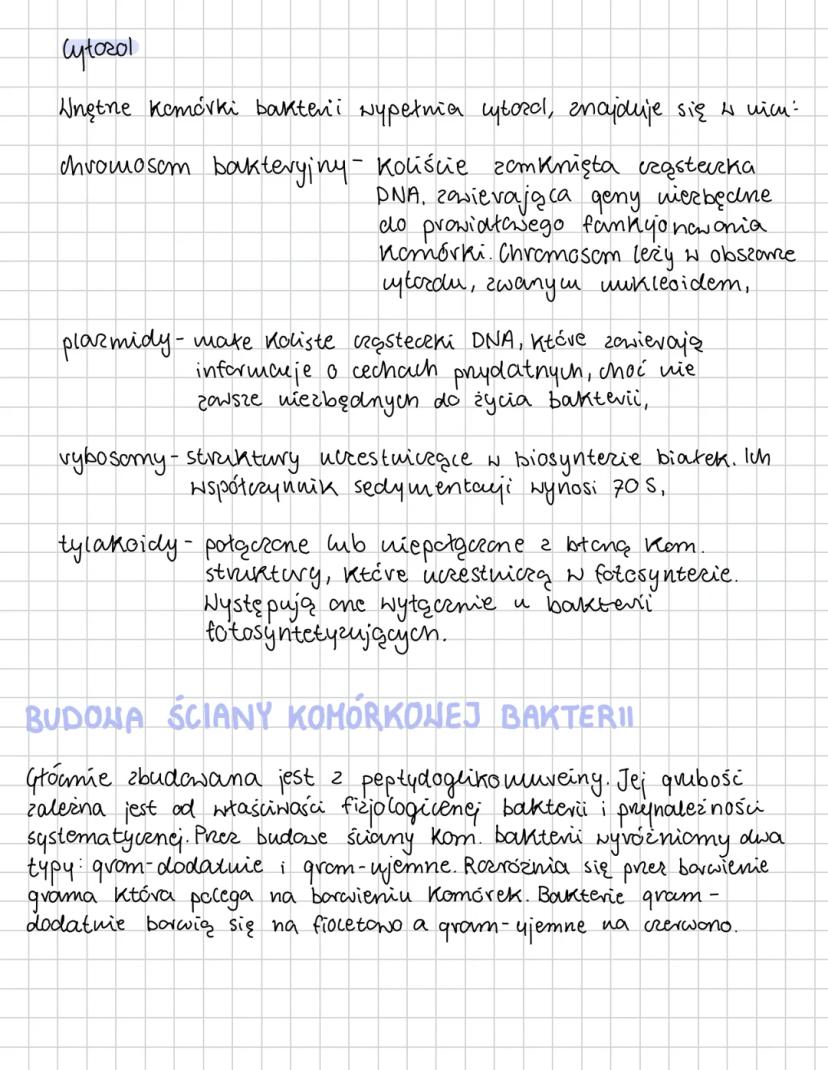 Cytozol
Wnętrze komórki bakterii wypełnia cytozol, znajduje się w nim:
chromosom bakteryjny - koliście zamknięta cząsteczka
DNA, zawierająca geny niezbędne
do prawidłowego funkcjonowania
komórki. Chromosom leży w obszarze
cytozolu, zwanym nukleoidem,
plazmidy - małe koliste cząsteczki DNA, które zawierają
informacje o cechach przydatnych, choć nie
zawsze niezbędnych do życia bakterii,
rybosomy - struktury uczestniczące w biosyntezie białek. Ich
współczynnik sedymentacji wynosi 70 S,
tylakoidy - połączone lub niepołączone z błoną kom.
struktury, które uczestniczą w fotosyntezie.
Występują one wyłącznie u bakterii
fotosyntetyzujących.
BUDOWA ŚCIANY KOMÓRKOWEJ BAKTERII
Głównie zbudowana jest z peptydoglikomureiny. Jej grubość
zależna jest od właściwości fizjologicznej bakterii i przynależności
systematycznej. Przez budowe ściany kom. bakterii wyróżniamy dwa
typy: gram-dodatnie i gram-ujemne. Rozróżnia się przez barwienie
grama która polega na barwieniu komórek. Bakterie gram-
dodatnie barwią się na fioletowo a gram-ujemne na czerwono.